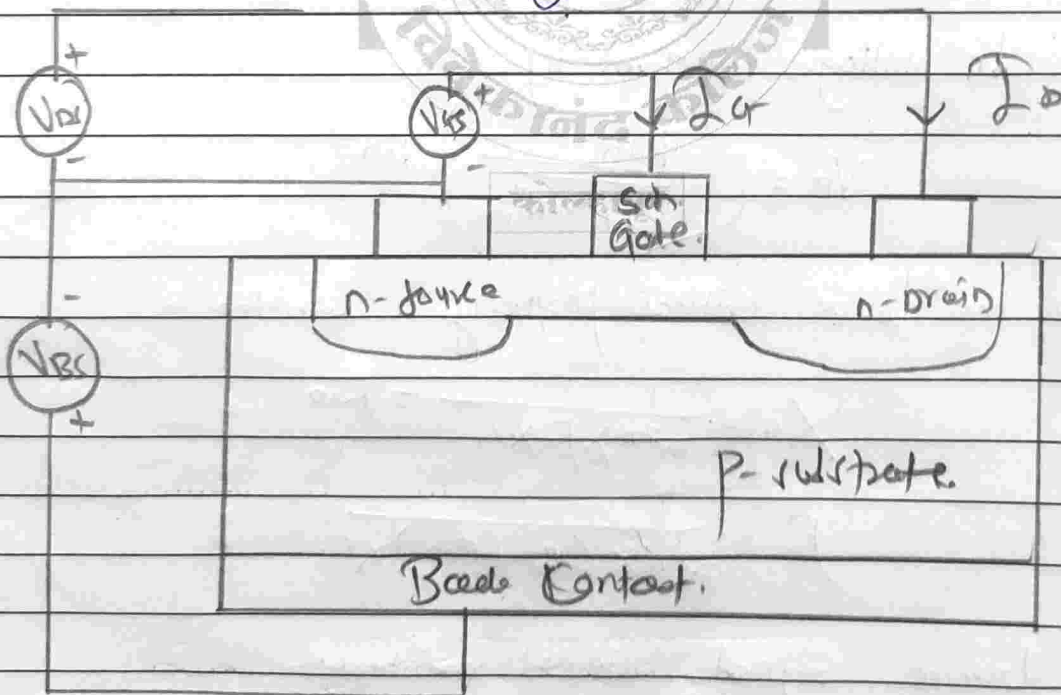 विवेकानंद कॉलेज
+
+
VDS
VGS
IG
ID
-
-
Sch
Gate.
n-source
n-Drain
-
VBS
+
P-substrate.
Back Contact.